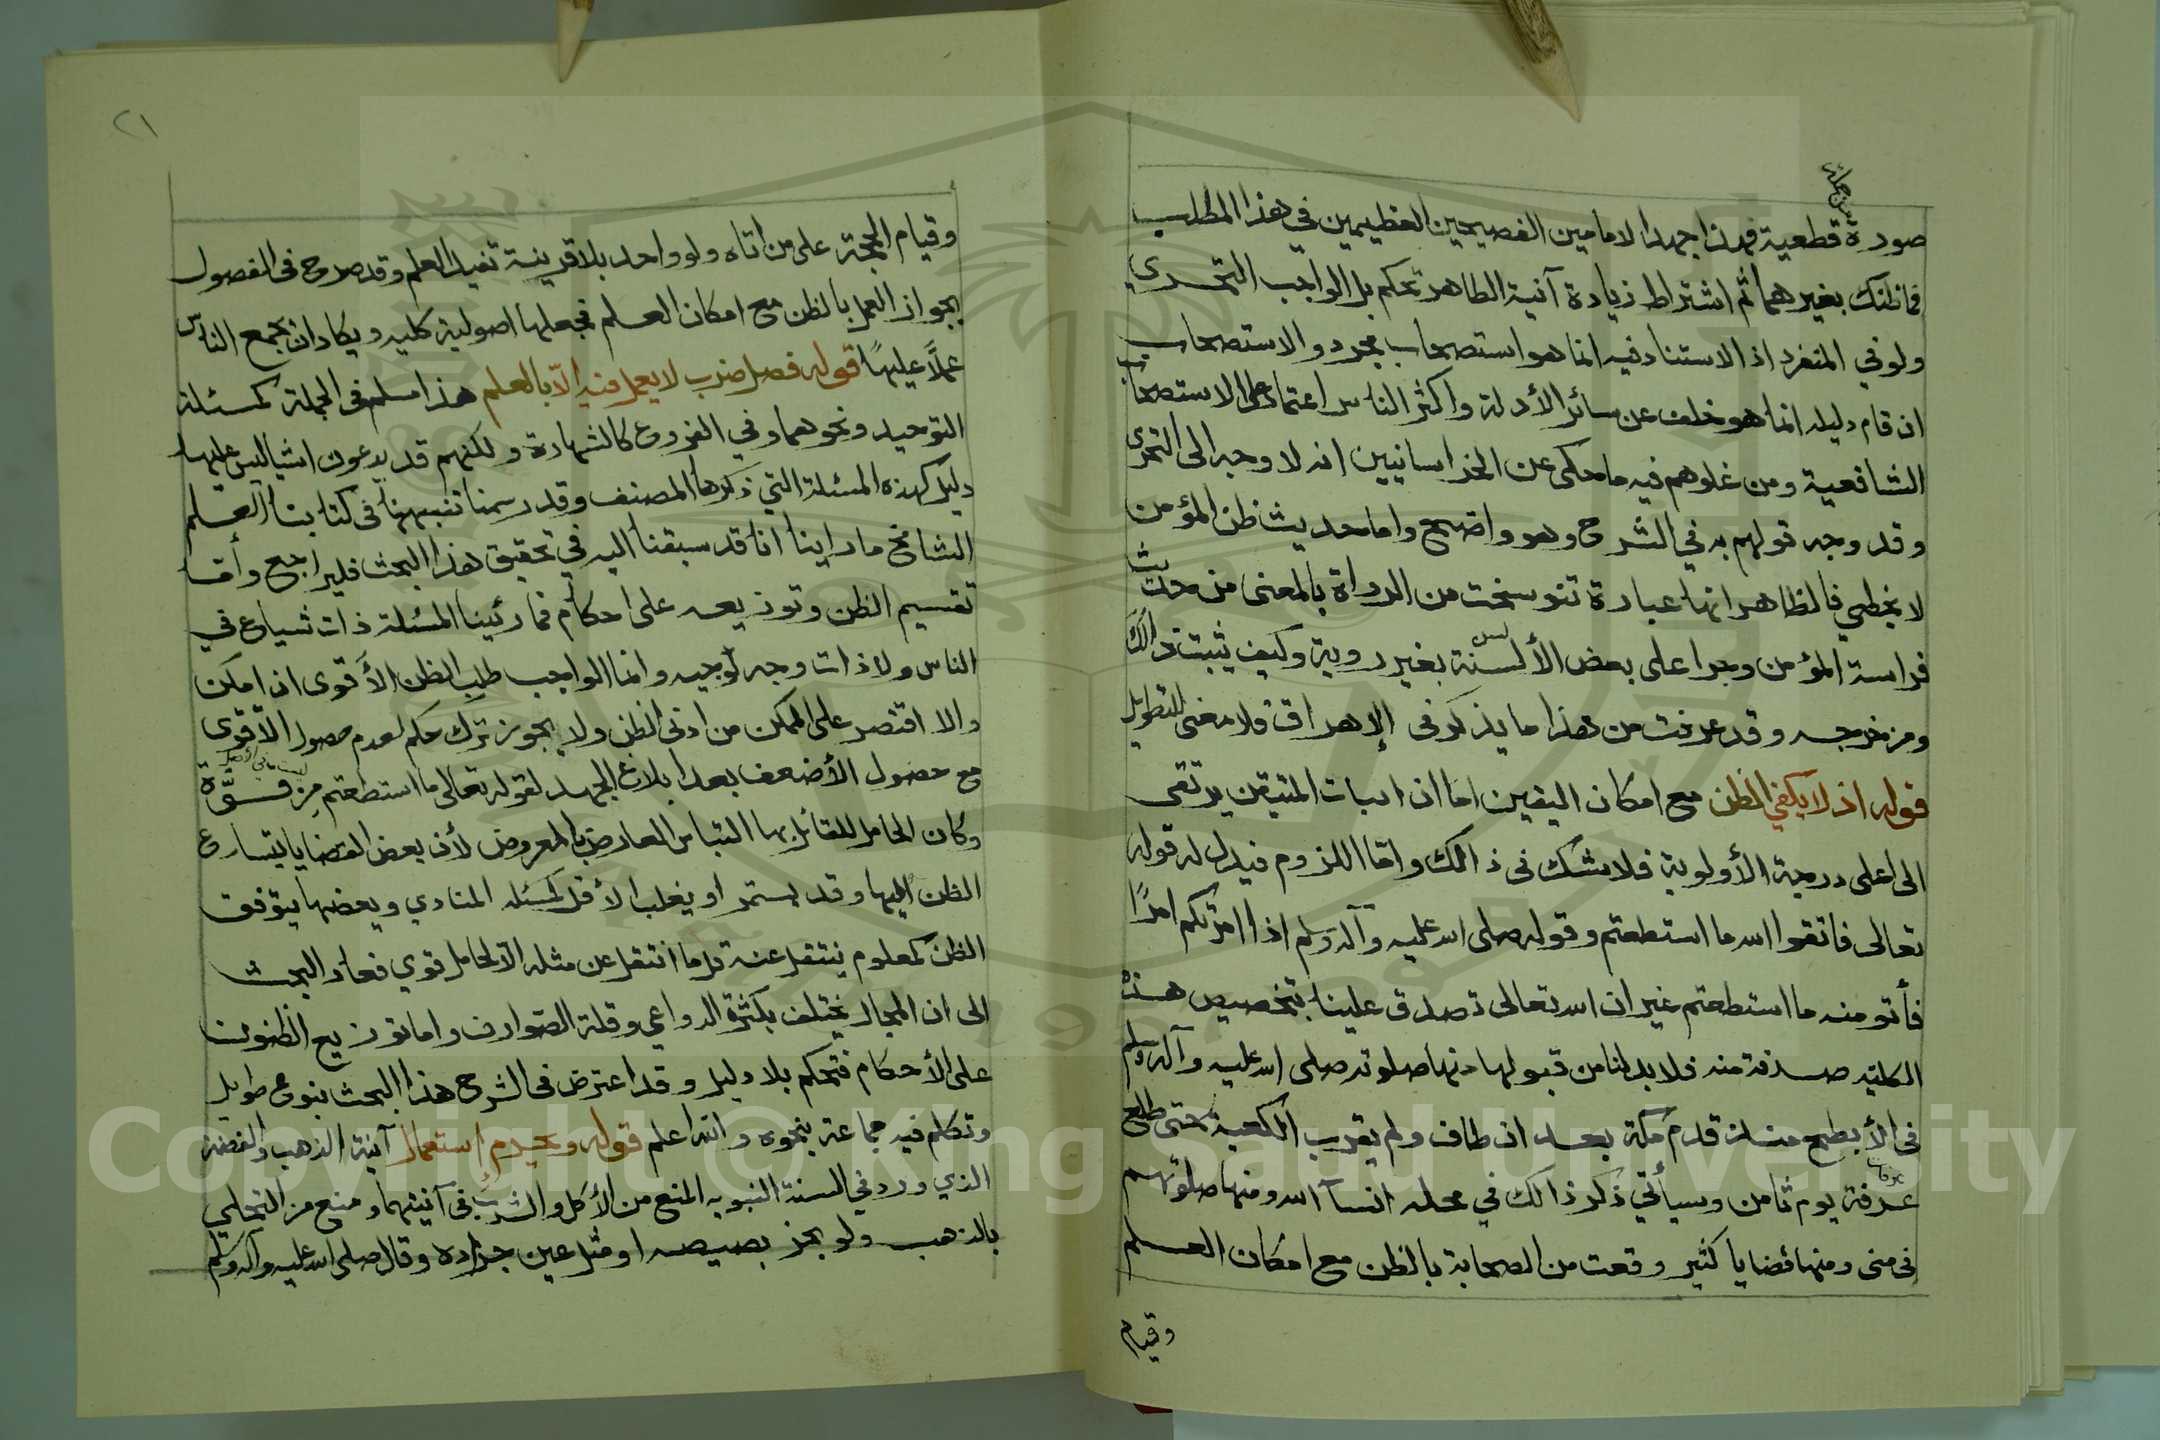 صورة قطعية فهذا جهد الامامين الفصيحين العظيمين في هذا المطلب
فما ظنك بغيرهما ثم اشتراط زيادة آنية الطاهر تحكم بل الواجب التحري
ولو في المنفرد اذ الاستناد فيه انما هو استصحاب مجرد والاستصحاب
ان قام دليله انما هو خلف عن سائر الأدلة واكثر الناس اعتمادا على الاستصحاب
الشافعية ومن غلوهم فيه ما حكى عن الخراسانيين انه لا وجه الى التحري
وقد وجه قولهم به في الشرح وهو واضح واما حديث ظن المؤمن
لا يخطي فالظاهر انها عبارة تنوسخت من الرواة بالمعنى من حديث
فراسة المؤمن وجرا على بعض الألسنة بغير روية وكيف يثبت ذالك
ومن خرجه وقد عرفت من هذا ما يذكر في الإهراق ولا معنى للتطويل
قوله اذ لا يكفي الظن مع امكان اليقين اما ان اثبات المتيقن يرتقى
الى اعلى درجة الأولوية فلا شك في ذالك واما اللزوم فيدل له قوله
تعالى فاتقوا الله ما استطعتم وقوله صلى الله عليه وآله وسلم اذا امرتكم امرًا
فأتو منه ما استطعتم غير ان الله تعالى تصدق علينا بتخصيص هذه
الكليه صدقة منه فلا بد لنا من قبولها منها صلوته صلى الله عليه وآله وسلم
في الأبطح منذ قدم مكة بعد ان طاف ولم يقرب الكعبة حتى طلع
عرفة يوم ثامن وسيأتي ذكر ذالك في محله انسآ الله ومنها صلوتهم
في منى ومنها قضايا كثير وقعت من الصحابة بالظن مع امكان العلم
وقيام
٢١
وقيام الحجة على من اتاه ولو واحد بلا قرينة تفيد العلم وقد صرح في الفصول
بجواز العمل بالظن مع امكان العلم فجعلها اصولية كليه ويكاد ان يجمع الناس
عملاً عليها قوله فصل ضرب لا يعمل فيه الّا بالعلم هذا مسلم في الجملة كمسئلة
التوحيد ونحوهما وفي الفروع كالشهادة ولكنهم قد يدعون اشيا ليس عليها
دليل كهذه المسئلة التي ذكرها المصنف وقد رسمنا تنبيهنا في كتابنا العلم
الشامخ ما راينا انا قد سبقنا اليه في تحقيق هذا البحث فليراجع وأما
تقسيم الظن وتوزيعه على احكام فما رئينا المسئلة ذات شياع في
الناس ولا ذات وجه لوجيه وانما الواجب طلب الظن الأقوى ان امكن
والا اقتصر على الممكن من ادنى الظن ولا يجوز ترك حكم لعدم حصول الأقوى
مع حصول الأضعف بعد ابلاغ الجهد لقوله تعالى ما استطعتم من قوّة
وكان الحامل للقائل بها التباس العارض بالمعروض لأن بعض القضايا يتسارع
الظن اليها وقد يستمر او يغلب الأقل كمسئله المنادي وبعضها يتوقف
الظن كمعلوم ينتقل عنه قل ما انتقل عن مثله الا لحامل قوي فعاد البحث
الى ان المجال يختلف بكثرة الدواعي وقلة الصوارف واما توزيع الظنون
على الأحكام فتحكم بلا دليل وقد اعترض في الشرح هذا البحث بنوع طويل
وتكلم فيه جماعة بنحوه والله اعلم قوله ويحرم استعمال آنية الذهب والفضة
الذي ورد في السنة النبويه المنع من الأكل والشرب في آنيتهما ومنع من التحلي
بالذهب ولو بخر بصيصه او مثل عين جرادة وقال صلى الله عليه وآله وسلم
Copyright © King Saud University